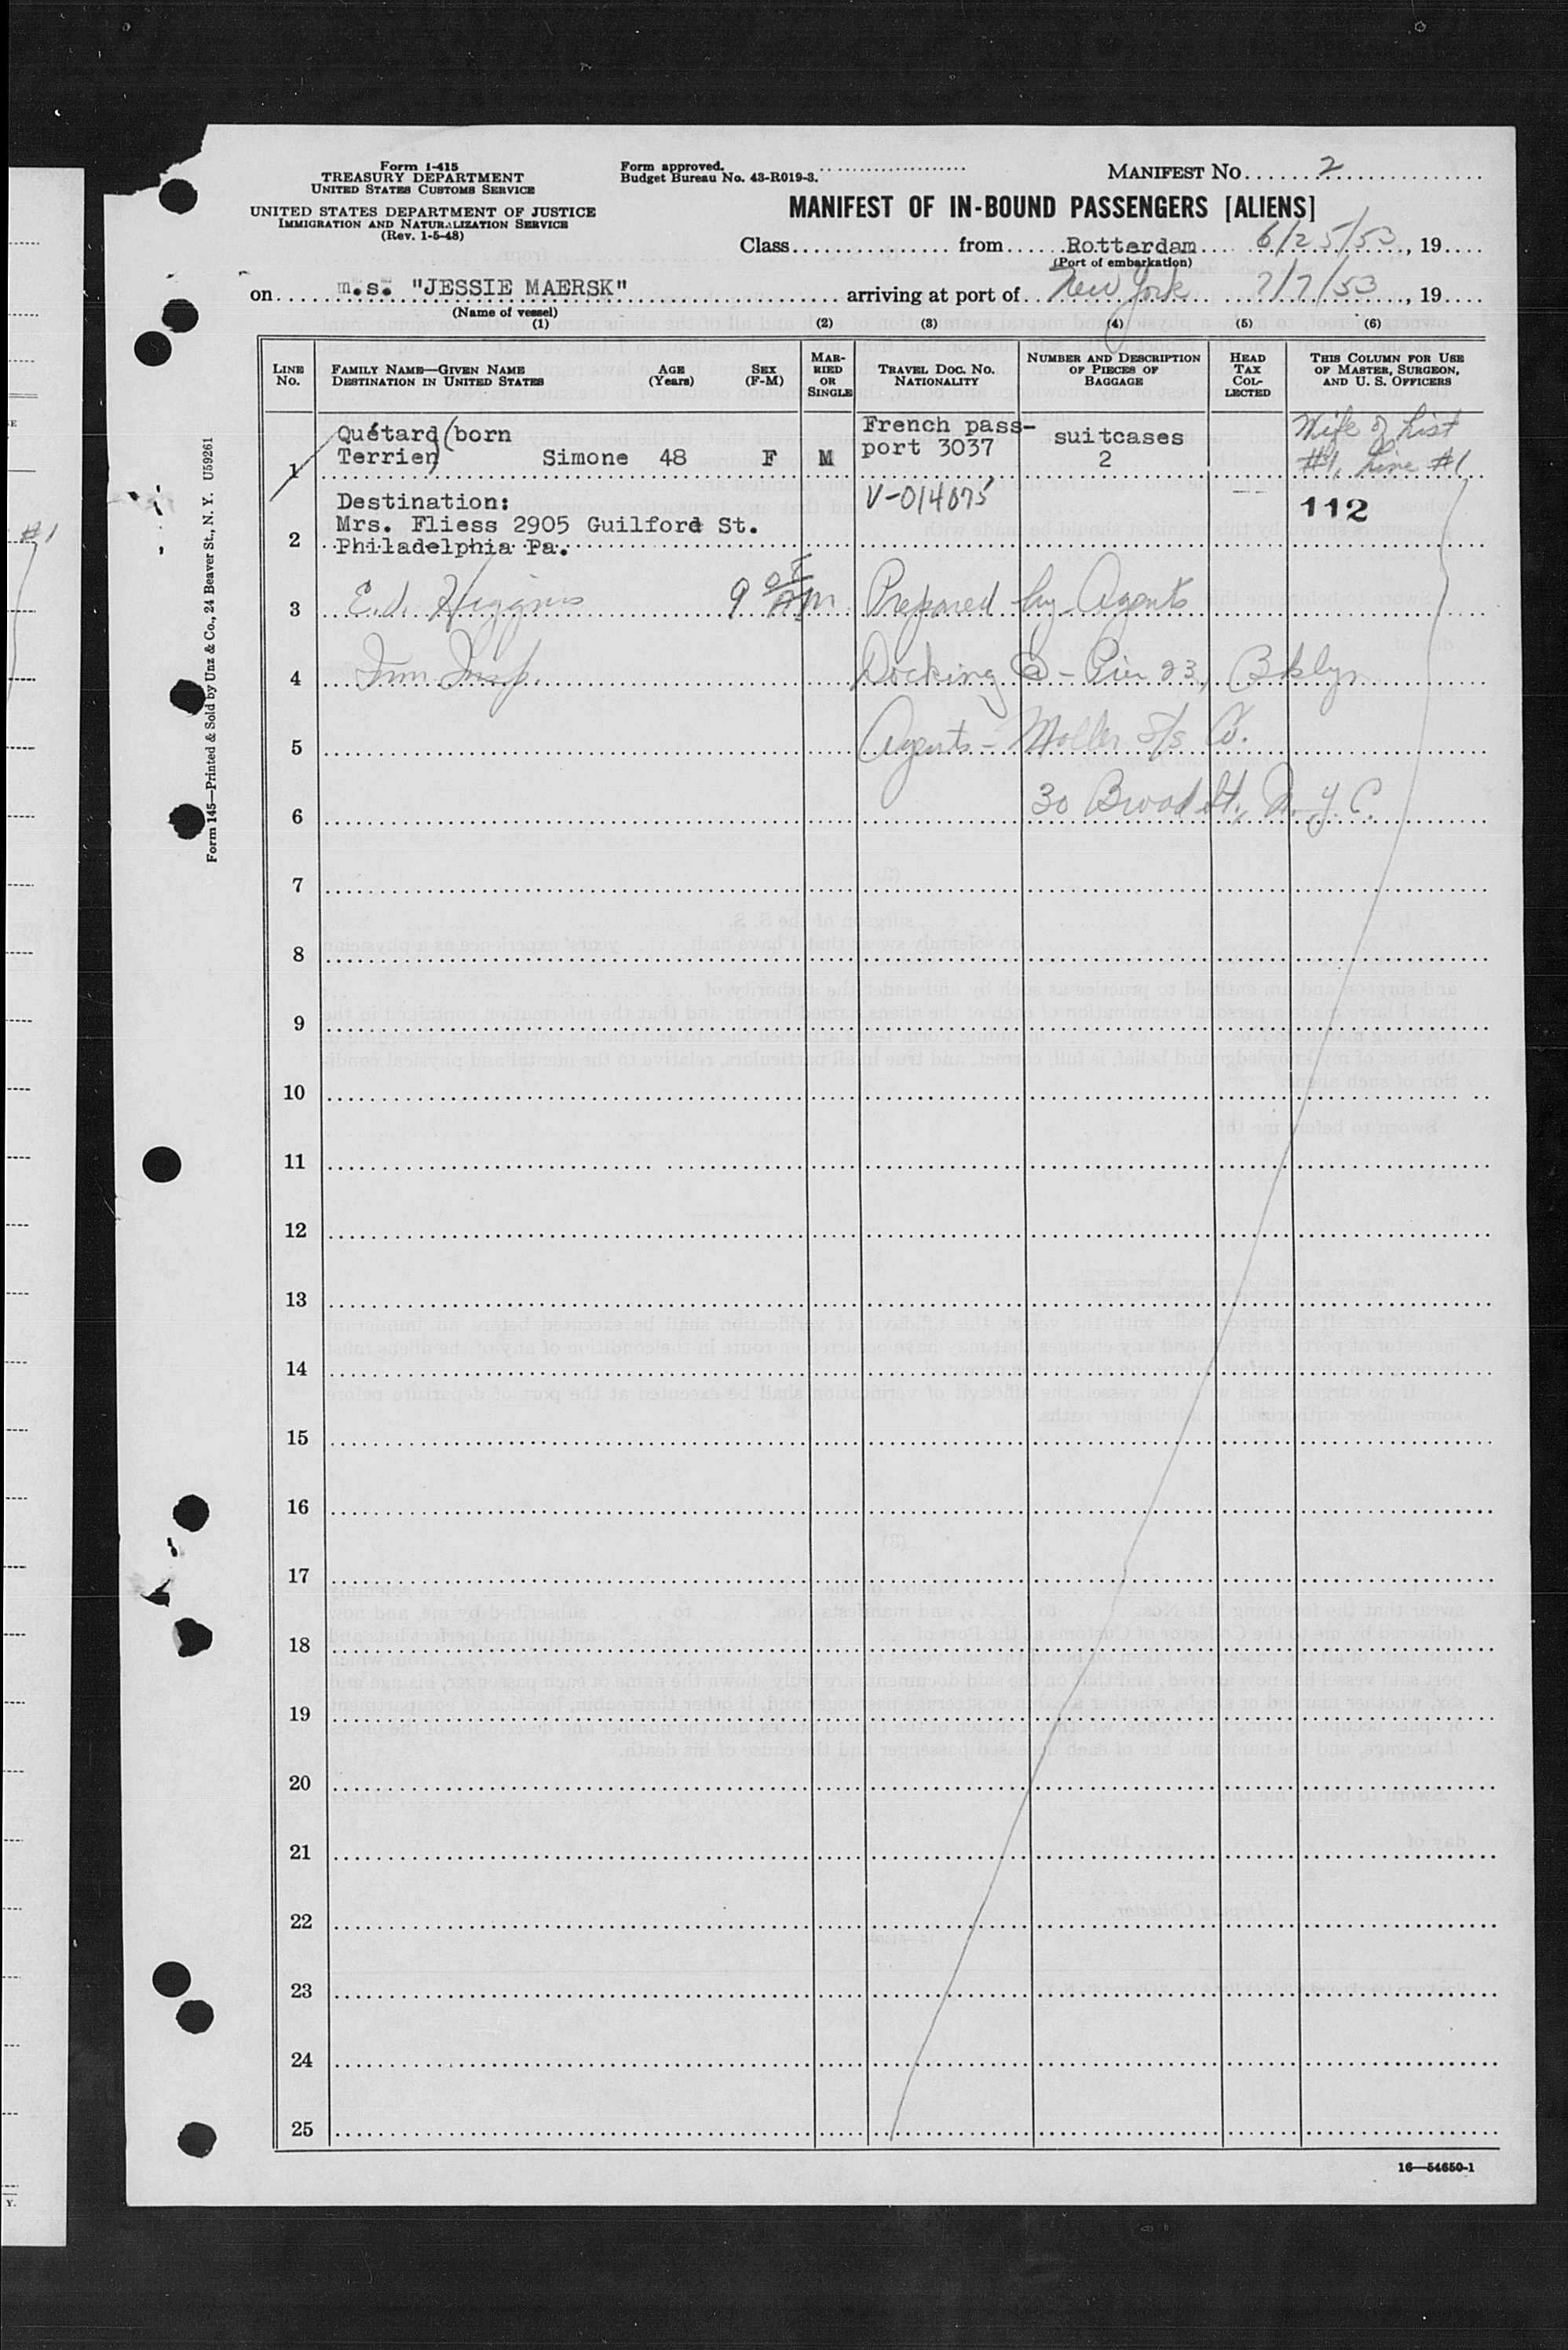 Form I-415
TREASURY DEPARTMENT
UNITED STATES CUSTOMS SERVICE
UNITED STATES DEPARTMENT OF JUSTICE
IMMIGRATION AND NATURALIZATION SERVICE
(Rev. 1-5-48)
Form approved.
Budget Bureau No. 43-R019-3.
MANIFEST NO. 2
MANIFEST OF IN-BOUND PASSENGERS [ALIENS]
Class from Rotterdam 6/25/53, 19
(Port of embarkation)
on m.s. "JESSIE MAERSK" arriving at port of New York 7/7/53, 19
(Name of vessel)
(1) (2) (3) (4) (5) (6)
LINE NO.
FAMILY NAME—GIVEN NAME
DESTINATION IN UNITED STATES
AGE (Years)
SEX (F-M)
MAR-RIED OR SINGLE
TRAVEL DOC. NO.
NATIONALITY
NUMBER AND DESCRIPTION OF PIECES OF BAGGAGE
HEAD TAX COL-LECTED
THIS COLUMN FOR USE OF MASTER, SURGEON, AND U. S. OFFICERS
Quétard (born French pass- suitcases Wife of List
1 Terrien) Simone 48 F M port 3037 2 #1, Line #1
Destination: V-014075 112
2 Mrs. Fliess 2905 Guilford St.
Philadelphia Pa.
3 E.J. Higgins 9 AM Prepared by Agents
4 Imm. Insp. Docking @ - Pier 23, Bklyn
5 Agents - Moller S/S Co.
6 30 Broad St., N.Y.C.
7
8
9
10
11
12
13
14
15
16
17
18
19
20
21
22
23
24
25
16—54650-1
Form 145—Printed & Sold by Unz & Co., 24 Beaver St., N. Y. U59261
#1